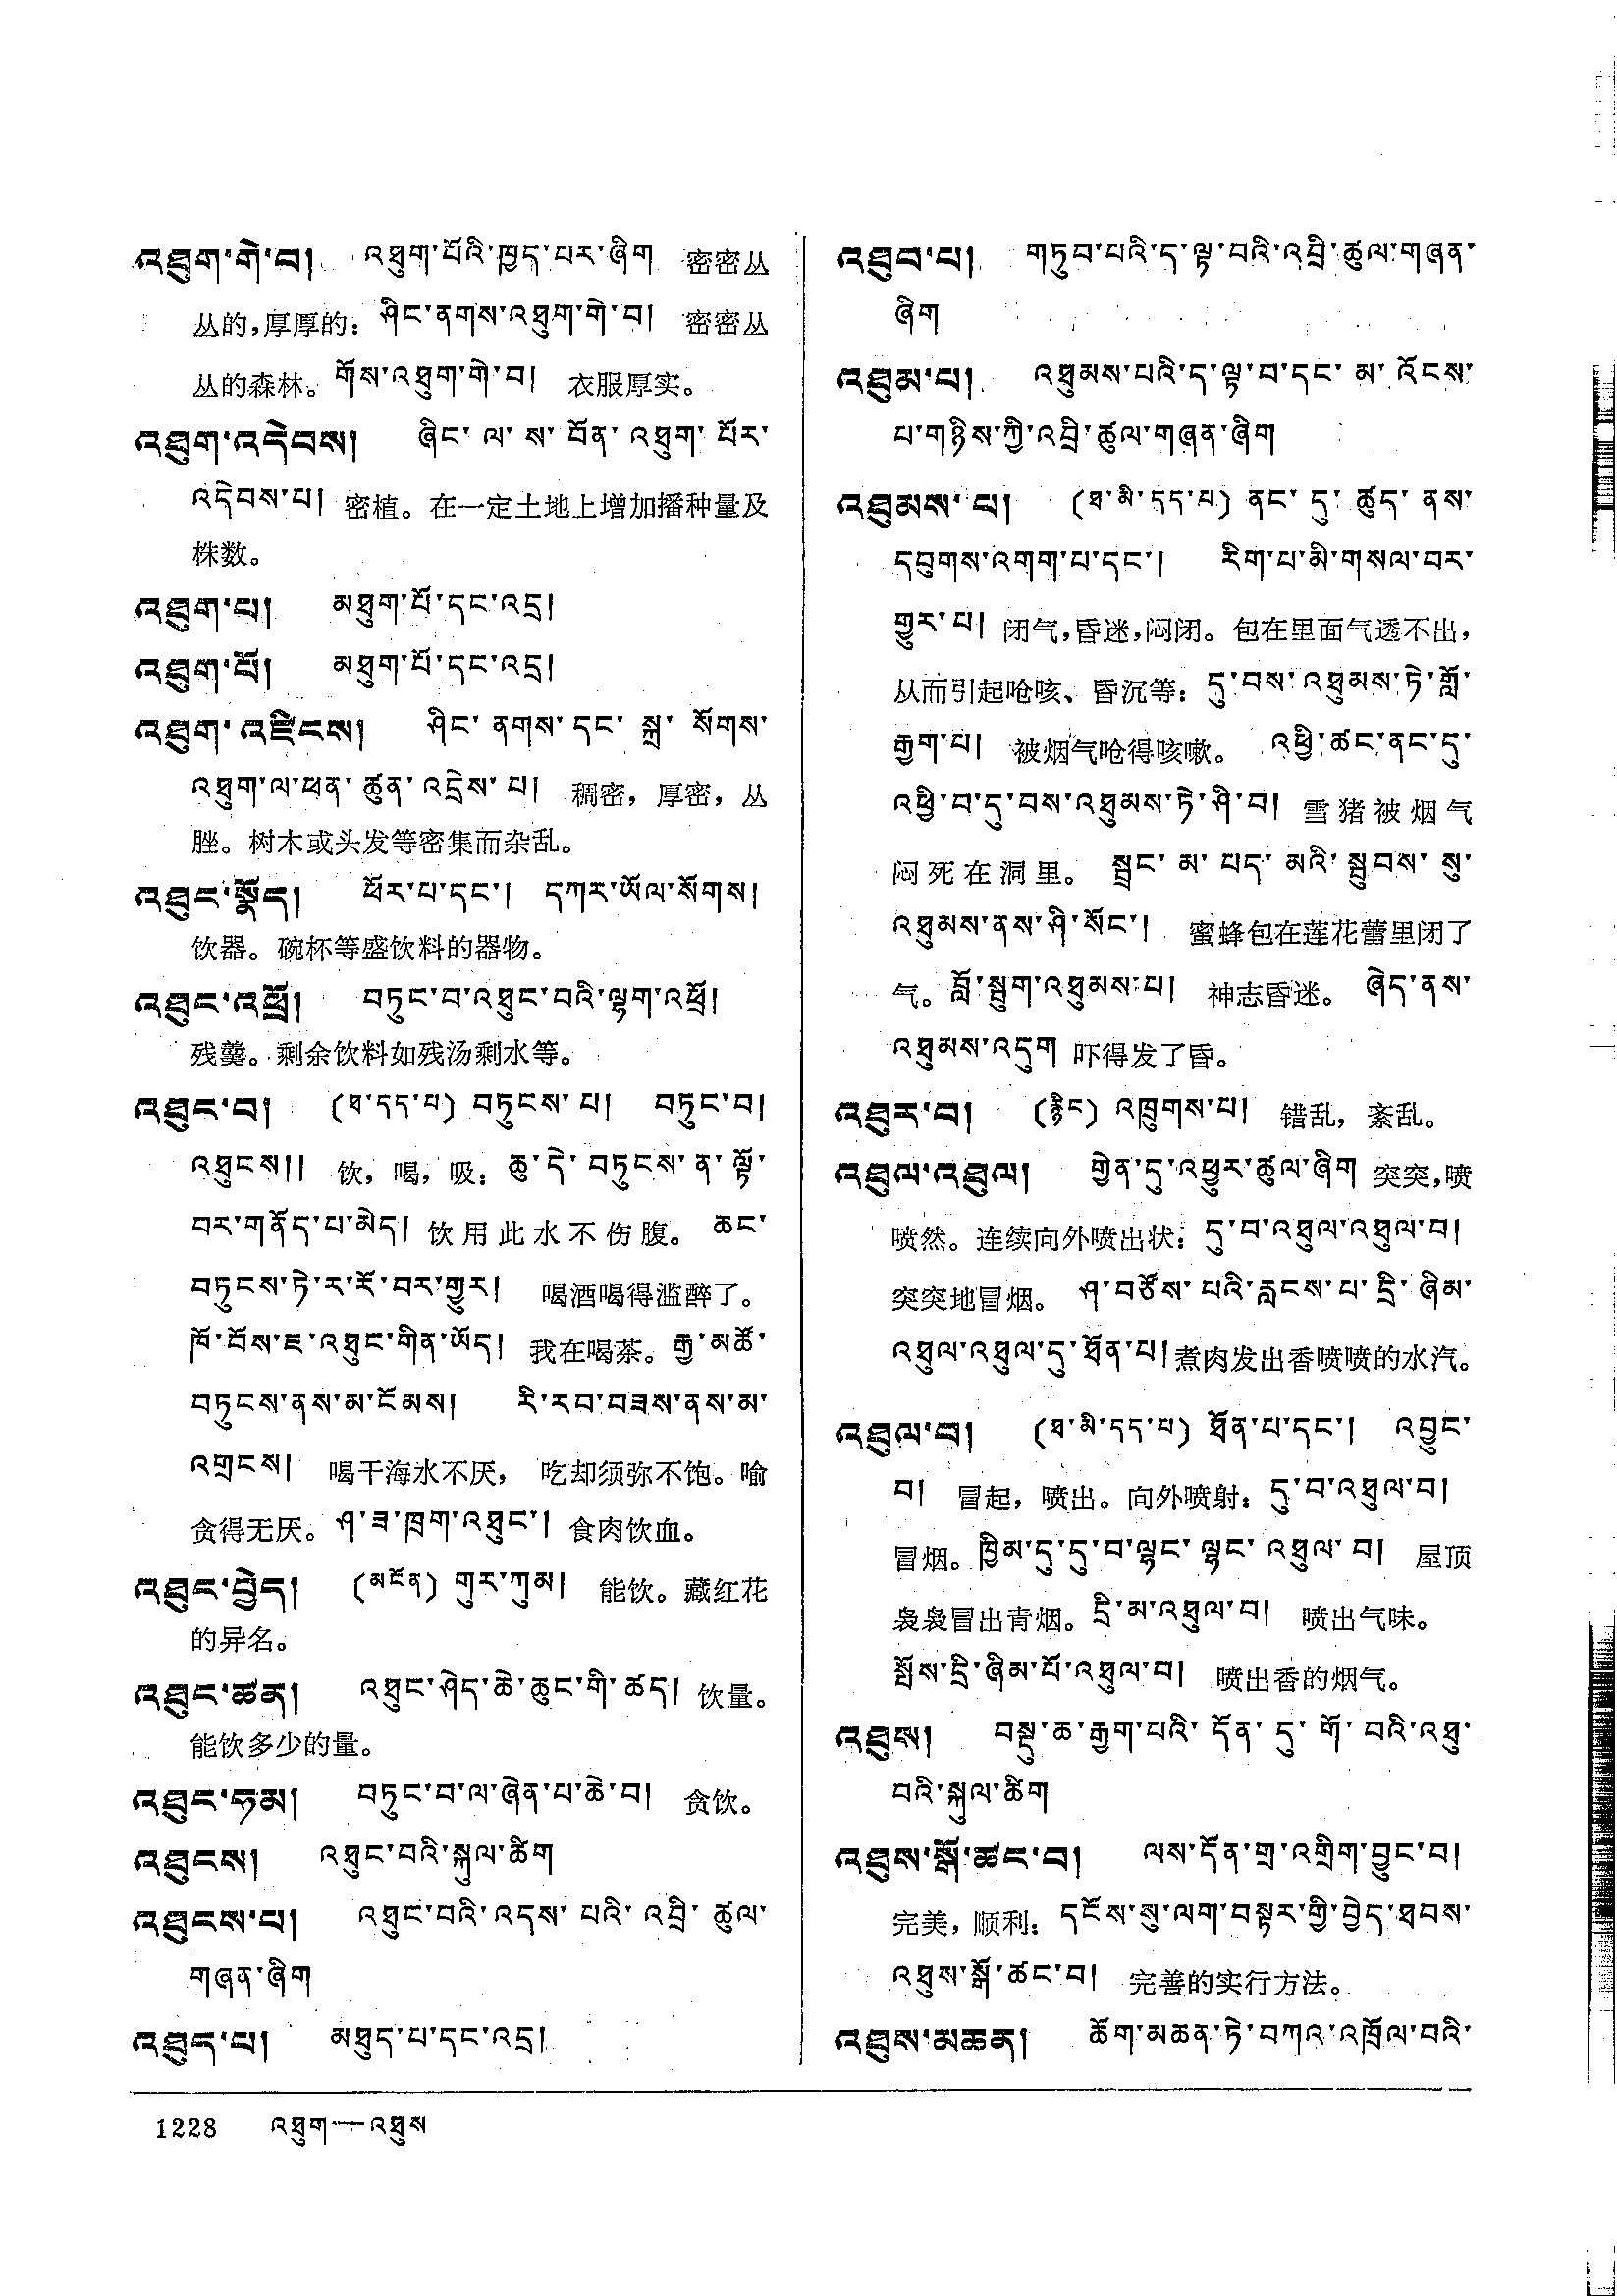 འཐུག་གེ་བ། འཐུག་པོའི་ཁྱད་པར་ཞིག 密密丛
丛的,厚厚的: ཤིང་ནགས་འཐུག་གེ་བ། 密密丛
丛的森林。གོས་འཐུག་གེ་བ། 衣服厚实。
འཐུག་འདེབས། ཞིང་ལ་ས་བོན་འཐུག་པོར་
འདེབས་པ། 密植。在一定土地上增加播种量及
株数。
འཐུག་པ། མཐུག་པོ་དང་འདྲ།
འཐུག་པོ། མཐུག་པོ་དང་འདྲ།
འཐུག་འཛིངས། ཤིང་ནགས་དང་སྐྲ་སོགས་
འཐུག་ལ་ཕན་ཚུན་འདྲེས་པ། 稠密，厚密，丛
脞。树木或头发等密集而杂乱。
འཐུང་སྣོད། ཕོར་པ་དང་། དཀར་ཡོལ་སོགས།
饮器。碗杯等盛饮料的器物。
འཐུང་འཕྲོ། བཏུང་བ་འཐུང་བའི་ལྷག་འཕྲོ།
残羹。剩余饮料如残汤剩水等。
འཐུང་བ། (ཐ་དད་པ) བཏུངས་པ། བཏུང་བ།
འཐུངས།། 饮，喝，吸: ཆུ་དེ་བཏུངས་ན་ལྟོ་
བར་གནོད་པ་མེད། 饮用此水不伤腹。ཆང་
བཏུངས་ཏེ་ར་རོ་བར་གྱུར། 喝酒喝得滥醉了。
ཁོ་བོས་ཇ་འཐུང་གིན་ཡོད། 我在喝茶。རྒྱ་མཚོ་
བཏུངས་ནས་མ་ངོམས། རི་རབ་བཟས་ནས་མ་
འགྲངས། 喝干海水不厌，吃却须弥不饱。喻
贪得无厌。ཤ་ཟ་ཁྲག་འཐུང་། 食肉饮血。
འཐུང་བྱེད། (མངོན) གུར་ཀུམ། 能饮。藏红花
的异名。
འཐུང་ཚན། འཐུང་ཤེད་ཆེ་ཆུང་གི་ཚད། 饮量。
能饮多少的量。
འཐུང་ཧམ། བཏུང་བ་ལ་ཞེན་པ་ཆེ་བ། 贪饮。
འཐུངས། འཐུང་བའི་སྐུལ་ཚིག
འཐུངས་པ། འཐུང་བའི་འདས་པའི་འབྲི་ཚུལ་
གཞན་ཞིག
འཐུད་པ། མཐུད་པ་དང་འདྲ།
འཐུབ་པ། གཏུབ་པའི་ད་ལྟ་བའི་འབྲི་ཚུལ་གཞན་
ཞིག
འཐུམ་པ། འཐུམས་པའི་ད་ལྟ་བ་དང་མ་འོངས་
པ་གཉིས་ཀྱི་འབྲི་ཚུལ་གཞན་ཞིག
འཐུམས་པ། (ཐ་མི་དད་པ) ནང་དུ་ཚུད་ནས་
དབུགས་འགག་པ་དང་། རིག་པ་མི་གསལ་བར་
གྱུར་པ། 闭气,昏迷,闷闭。包在里面气透不出，
从而引起呛咳、昏沉等: དུ་བས་འཐུམས་ཏེ་གློ་
རྒྱག་པ། 被烟气呛得咳嗽。འཕྱི་ཚང་ནང་དུ་
འཕྱི་བ་དུ་བས་འཐུམས་ཏེ་ཤི་བ། 雪猪被烟气
闷死在洞里。སྦྲང་མ་པད་མའི་སྦུབས་སུ་
འཐུམས་ནས་ཤི་སོང་། 蜜蜂包在莲花蕾里闭了
气。བློ་སྦུག་འཐུམས་པ། 神志昏迷。ཞེད་ནས་
འཐུམས་འདུག 吓得发了昏。
འཐུར་བ། (རྙིང) འཁྲུགས་པ། 错乱，紊乱。
འཐུལ་འཐུལ། གྱེན་དུ་འཕྱུར་ཚུལ་ཞིག 突突,喷
喷然。连续向外喷出状: དུ་བ་འཐུལ་འཐུལ་བ།
突突地冒烟。ཤ་བཙོས་པའི་རླངས་པ་དྲི་ཞིམ་
འཐུལ་འཐུལ་དུ་ཐོན་པ། 煮肉发出香喷喷的水汽。
འཐུལ་བ། (ཐ་མི་དད་པ) ཐོན་པ་དང་། འབྱུང་
བ། 冒起，喷出。向外喷射: དུ་བ་འཐུལ་བ།
冒烟。ཁྱིམ་དུ་དུ་བ་ལྷང་ལྷང་འཐུལ་བ། 屋顶
袅袅冒出青烟。དྲི་མ་འཐུལ་བ། 喷出气味。
སྤོས་དྲི་ཞིམ་པོ་འཐུལ་བ། 喷出香的烟气。
འཐུས། བསྡུ་ཆ་རྒྱག་པའི་དོན་དུ་གོ་བའི་འཐུ་
བའི་སྐུལ་ཚིག
འཐུས་སྒོ་ཚང་བ། ལས་དོན་གྲ་འགྲིག་བྱུང་བ།
完美，顺利: དངོས་སུ་ལག་བསྟར་གྱི་བྱེད་ཐབས་
འཐུས་སྒོ་ཚང་བ། 完善的实行方法。
འཐུས་མཆན། ཆོག་མཆན་ཏེ་བཀའ་འཁྲོལ་བའི་
1228 འཐུག—འཐུས